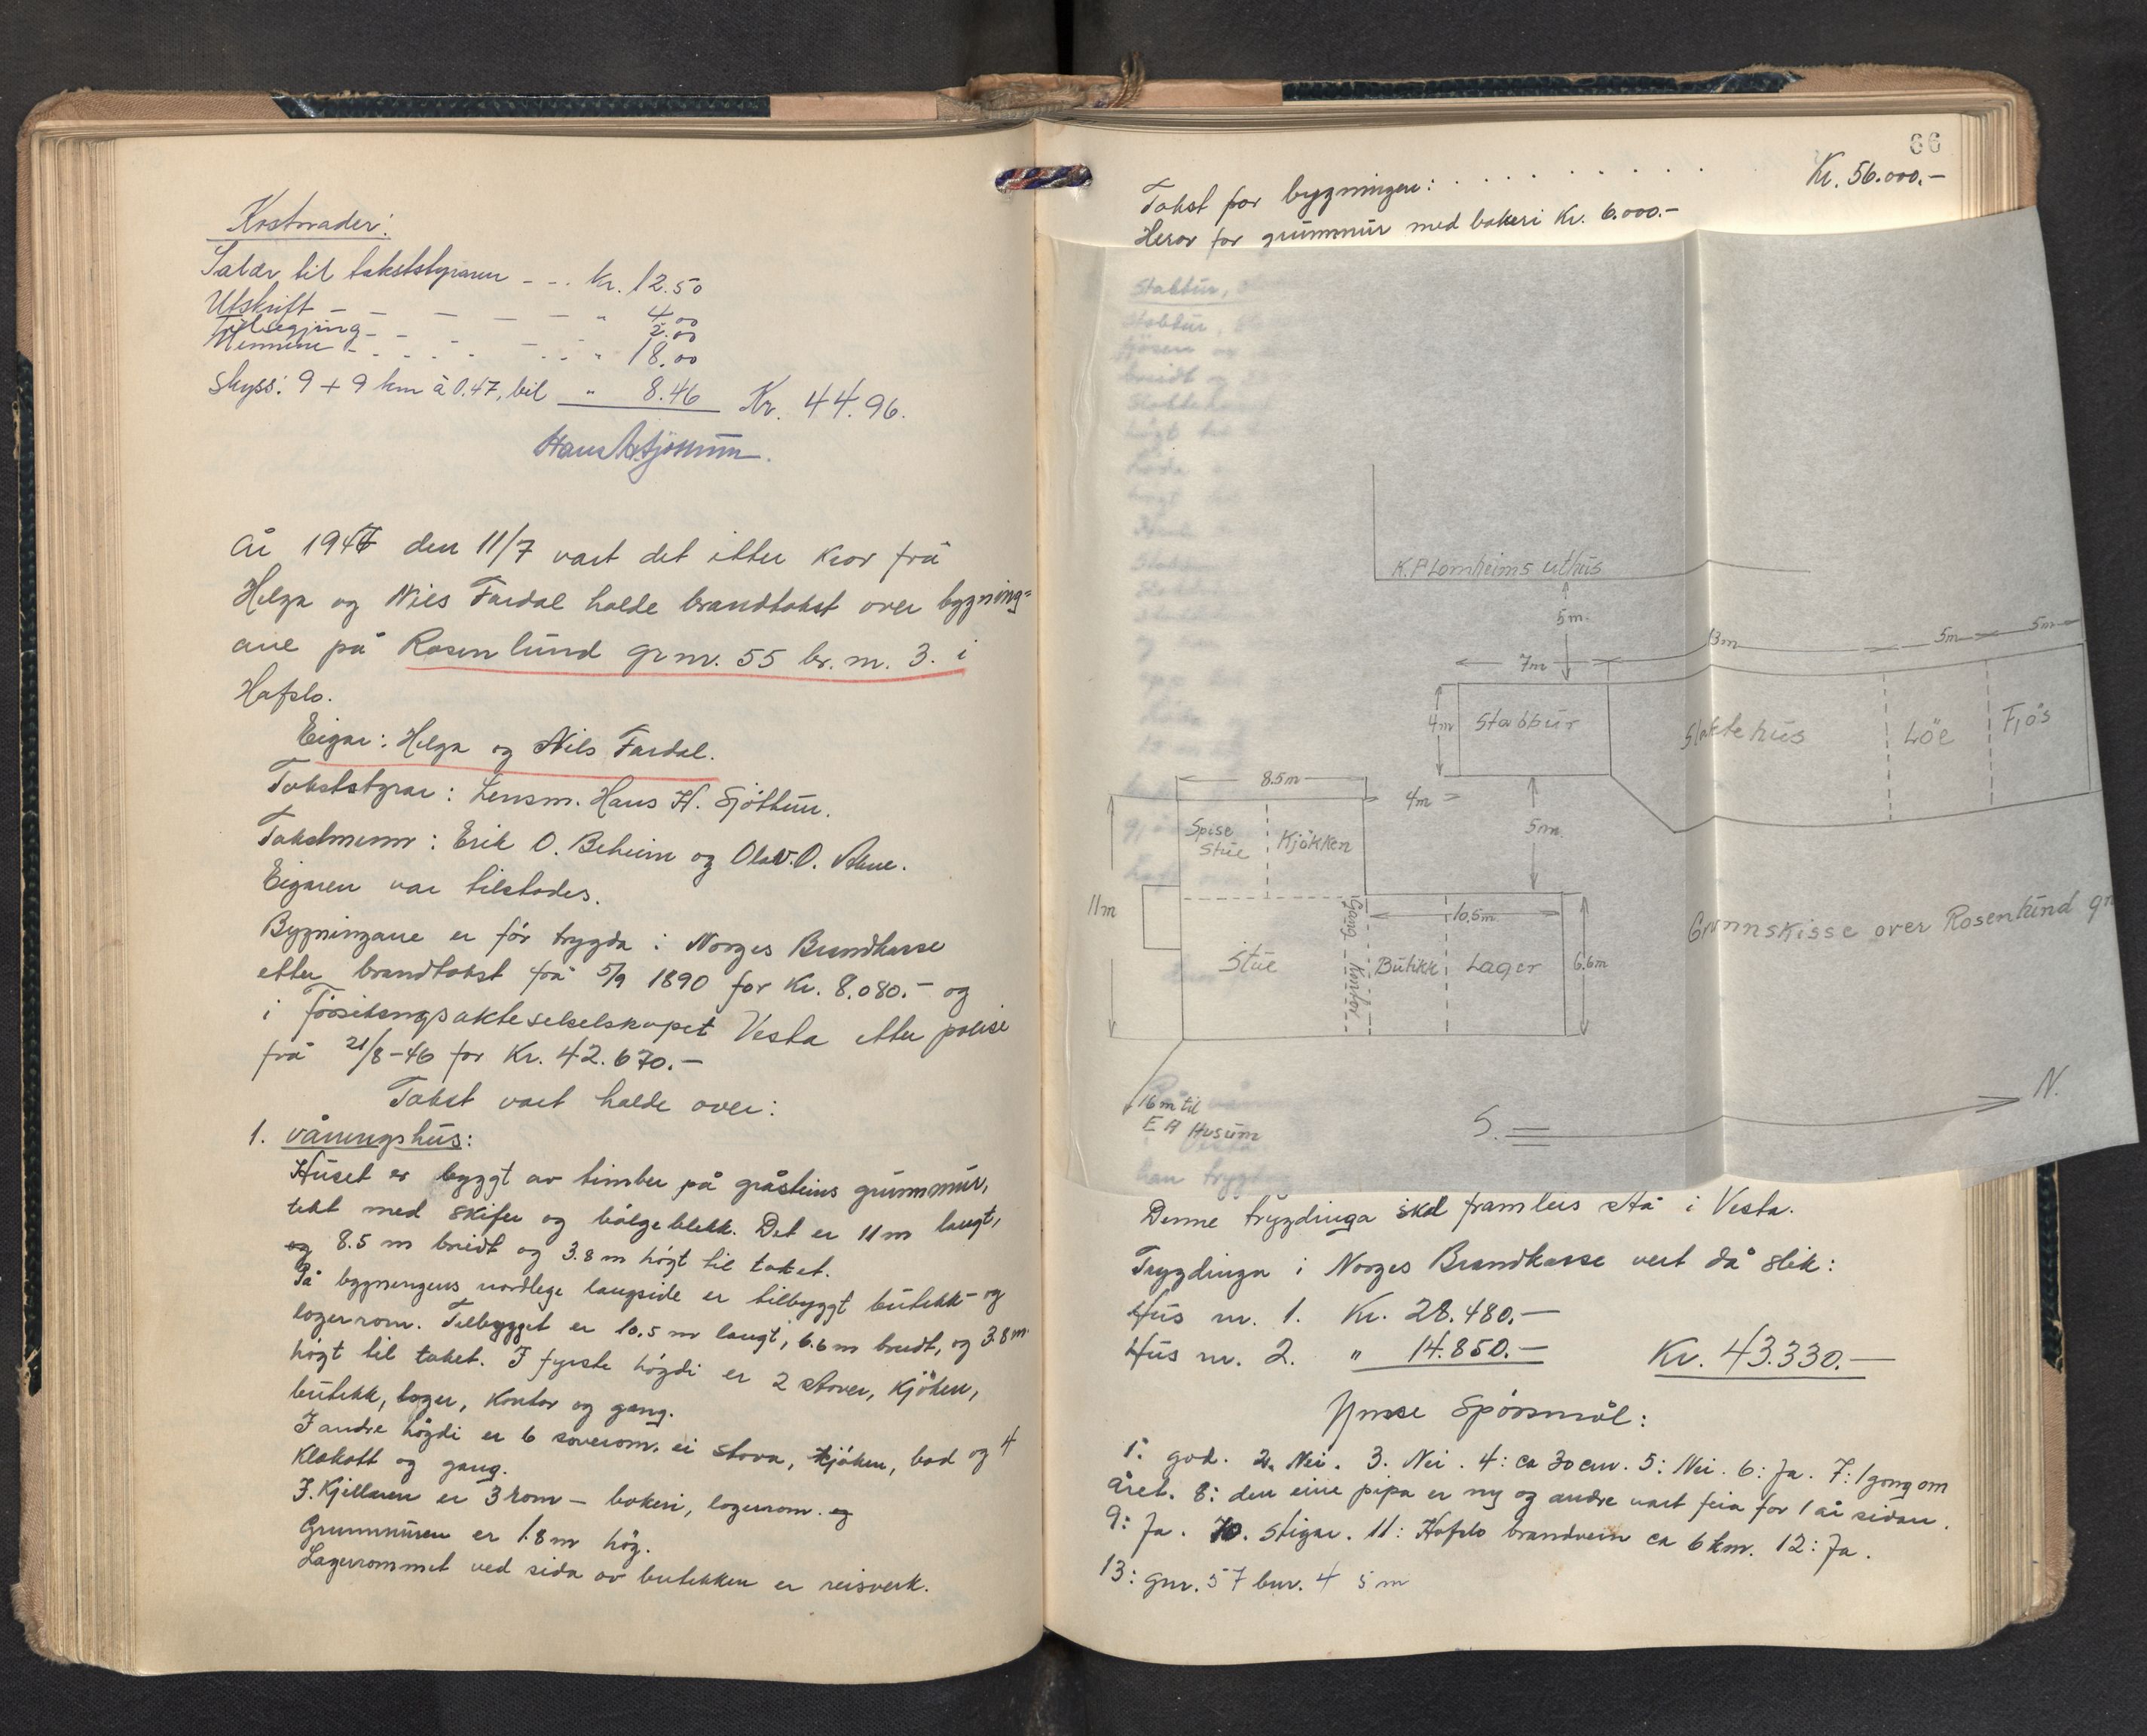 Kostnader:
Salær til takststyraren - - - kr. 12.50
Utskrift - - - - - " 4.00
Tilsegjing - - 2.00
Mennene - - - - - - - " 18.00
Skyss: 9 + 9 km à 0.47, bil " 8.46 Kr. 44.96.
Hans H. Sjøttun.
År 1947 den 11/7 vart det etter krav frå
Helga og Nils Fardal halde brandtakst over bygning=
ane på Rosenlund gr.nr. 55 br.nr. 3. i
Hafslo.
Eigar: Helga og Nils Fardal.
Takststyrar: Lensm. Hans H. Sjøttun.
Takstmenn: Erik O. Beheim og Olav O.
Eigaren var tilstades.
Bygningane er før trygda i Norges Brandkasse
etter brandtakst frå 5/9 1890 for Kr. 8.080.- og
i Forsikringsakteselselskapet Vesta etter polise
frå 21/8-46 for Kr. 42.670.-
Takst vart halde over:
1. våningshus:
Huset er byggt av timber på gråsteins grunnmur,
tekt med skifer og bølgeblekk. Det er 11 m langt,
og 8.5 m breidt og 3.8 m høgt til taket.
På bygningens nordlege langside er tilbyggt butikk- og
lagerrom. Tilbygget er 10.5 m langt, 6.6 m breidt, og 3.8 m
høgt til taket. I fyrste høgdi er 2 stover, kjøken,
butikk, lager, kontor og gang.
I andre høgdi er 6 soverom, ei stova, kjøken, bad og 4
klokott og gang.
I. Kjellaren er 3 rom - bakeri, lagerrom. og
Grunnmuren er 1.8 m høg.
Lagerrommet ved sida av butikken er reisverk.
66
Takst for bygningen: . . . . . . . . . . Kr. 56.000.-
Herav for grunnmur med bakeri Kr. 6.000.-
K.P Lomheims uthus
5m.
7m 13m 5m 5m
4m Stabbur Slaktehus Löe Fjös
8.5m
4m
5m.
Spise
stue Kjökken
11m
Gang 10.5m.
Stue Kontor Butikk Lager 6.6m
Grunnskisse over Rosenlund gr
16m til
E H Husum
S. N.
Denne trygdinga skal framleis stå i Vesta.
Trygdinga i Norges Brandkasse vert då slik:
Hus nr. 1. Kr. 28.480.-
Hus nr. 2. " 14.850.- Kr. 43.330.-
Ymse Spørsmål:
1: god. 2. Nei. 3. Nei. 4: ca 30 cm. 5: Nei. 6: Ja. 7: 1 gong om
året. 8: den eine pipa er ny og andre vart feia for 1 år sidan.
9: Ja. 10. Stigar. 11: Hafslo brandvern ca 6 km. 12: Ja.
13: gnr. 57 bnr. 4 5 m